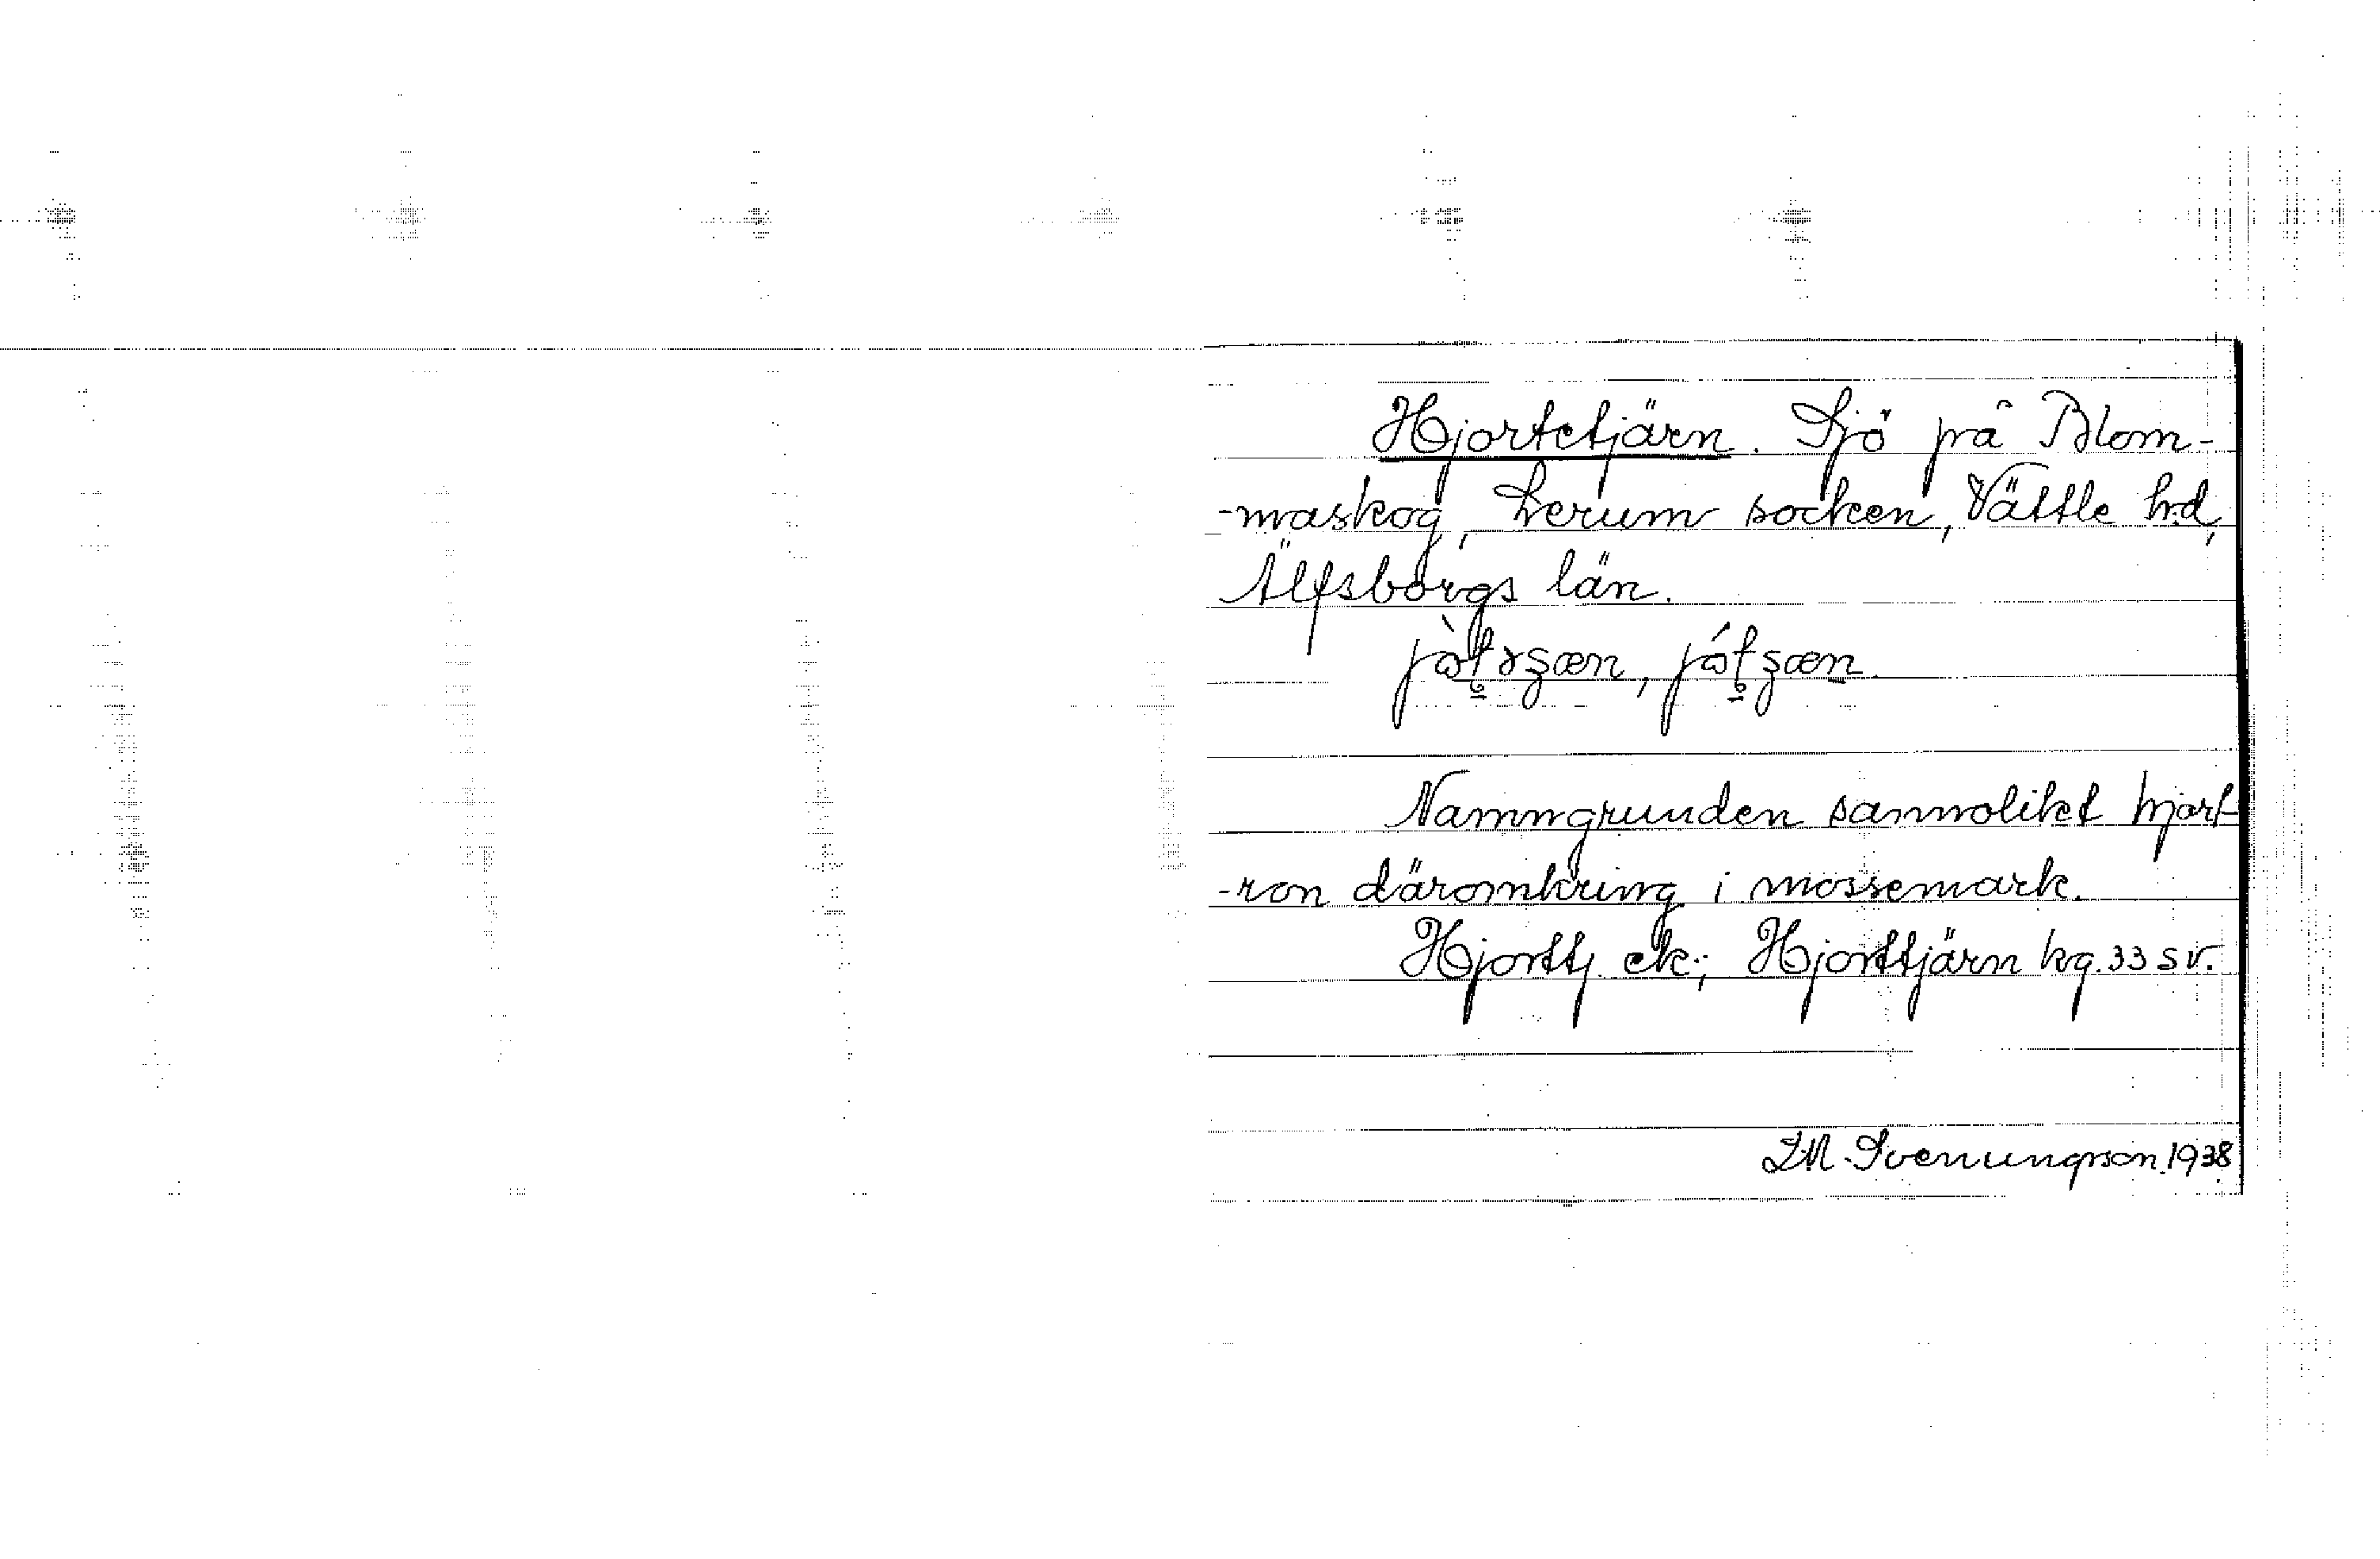 Hjortetjärn. Sjö på Blom-
-maskog, Lerum socken, Vättle hd,
Älfsborgs län.
Namngrunden sannolikt hjort-
-ron däromkring i mossemark.
Hjorttj. ek; Hjorttjärn kg. 33 s v.
I M. Svenungsson. 1938